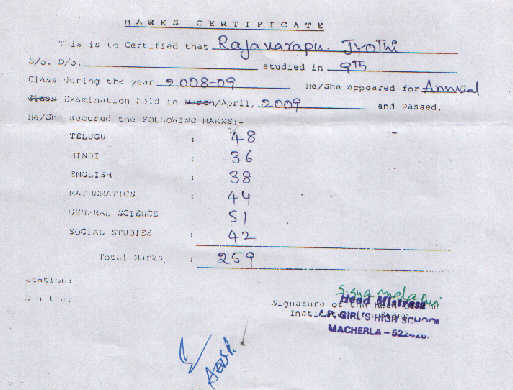 MARKS CERTIFICATE
This is to Certified that Rajavarapu. Jyothi
S/o. D/o. studied in 9th
Class during the year 2008-09 He/She appeared for Annual
Examination held in March/April, 2009 and Passed.
He/She secured the FOLLOWING MARKS:-
TELUGU : 48
HINDI : 36
ENGLISH : 38
MATHEMATICS : 44
GENERAL SCIENCE : 51
SOCIAL STUDIES : 42
Total Marks : 259
Station:
Date:
Signature of the
Head Mistress
Z.P. GIRL'S HIGH SCHOOL
MACHERLA - 522